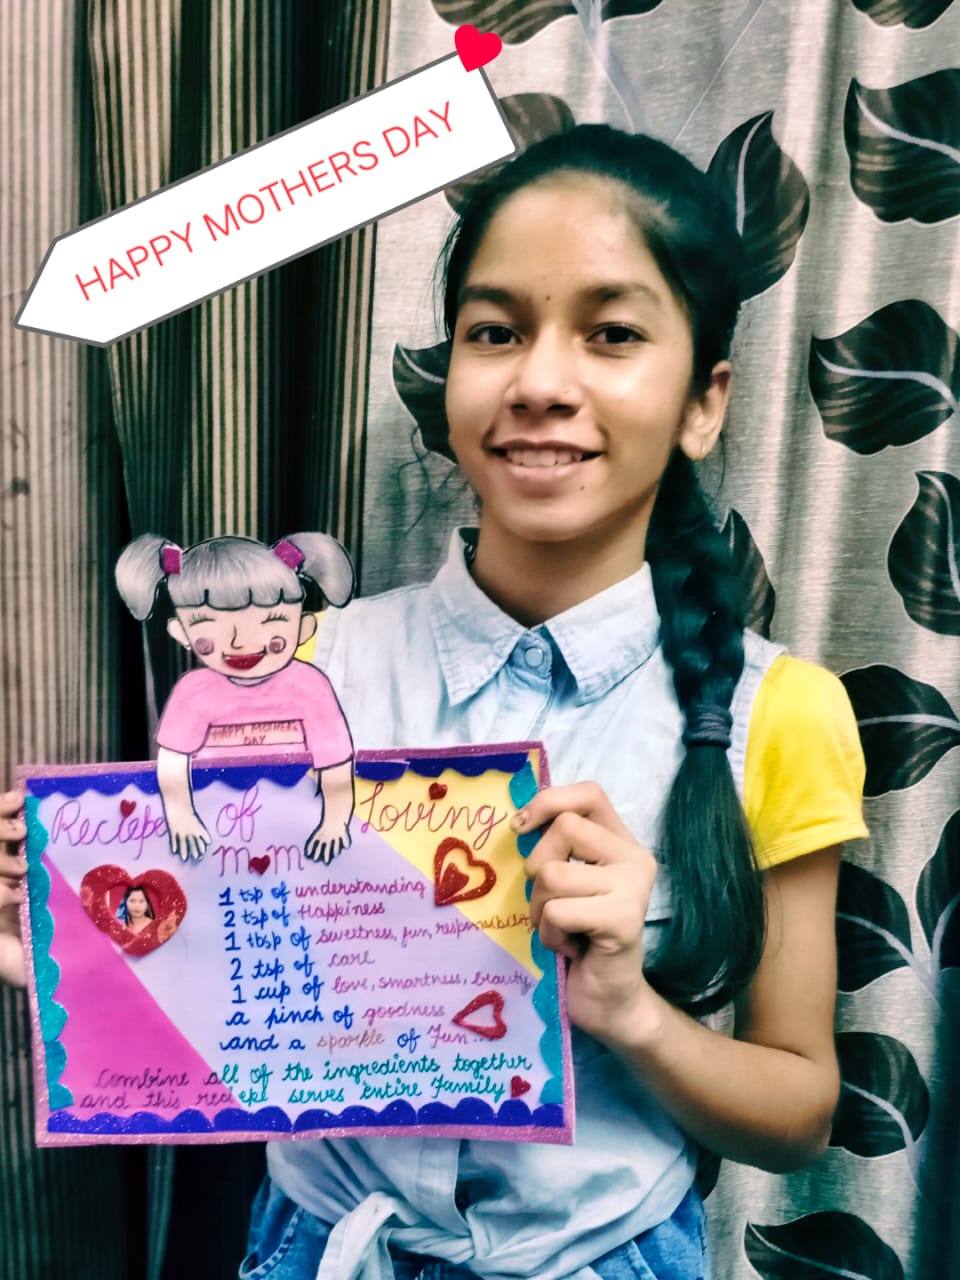 HAPPY MOTHERS DAY
HAPPY MOTHERS
DAY
Reciepe of Loving
MOM
1 tsp of understanding
2 tsp of Happiness
1 tbsp of sweetness, fun, responsibility
2 tsp of care
1 cup of love, smartness, beauty
a pinch of goodness
and a sparkle of Fun...
Combine all of the ingredients together
and this reciepe serves entire Family